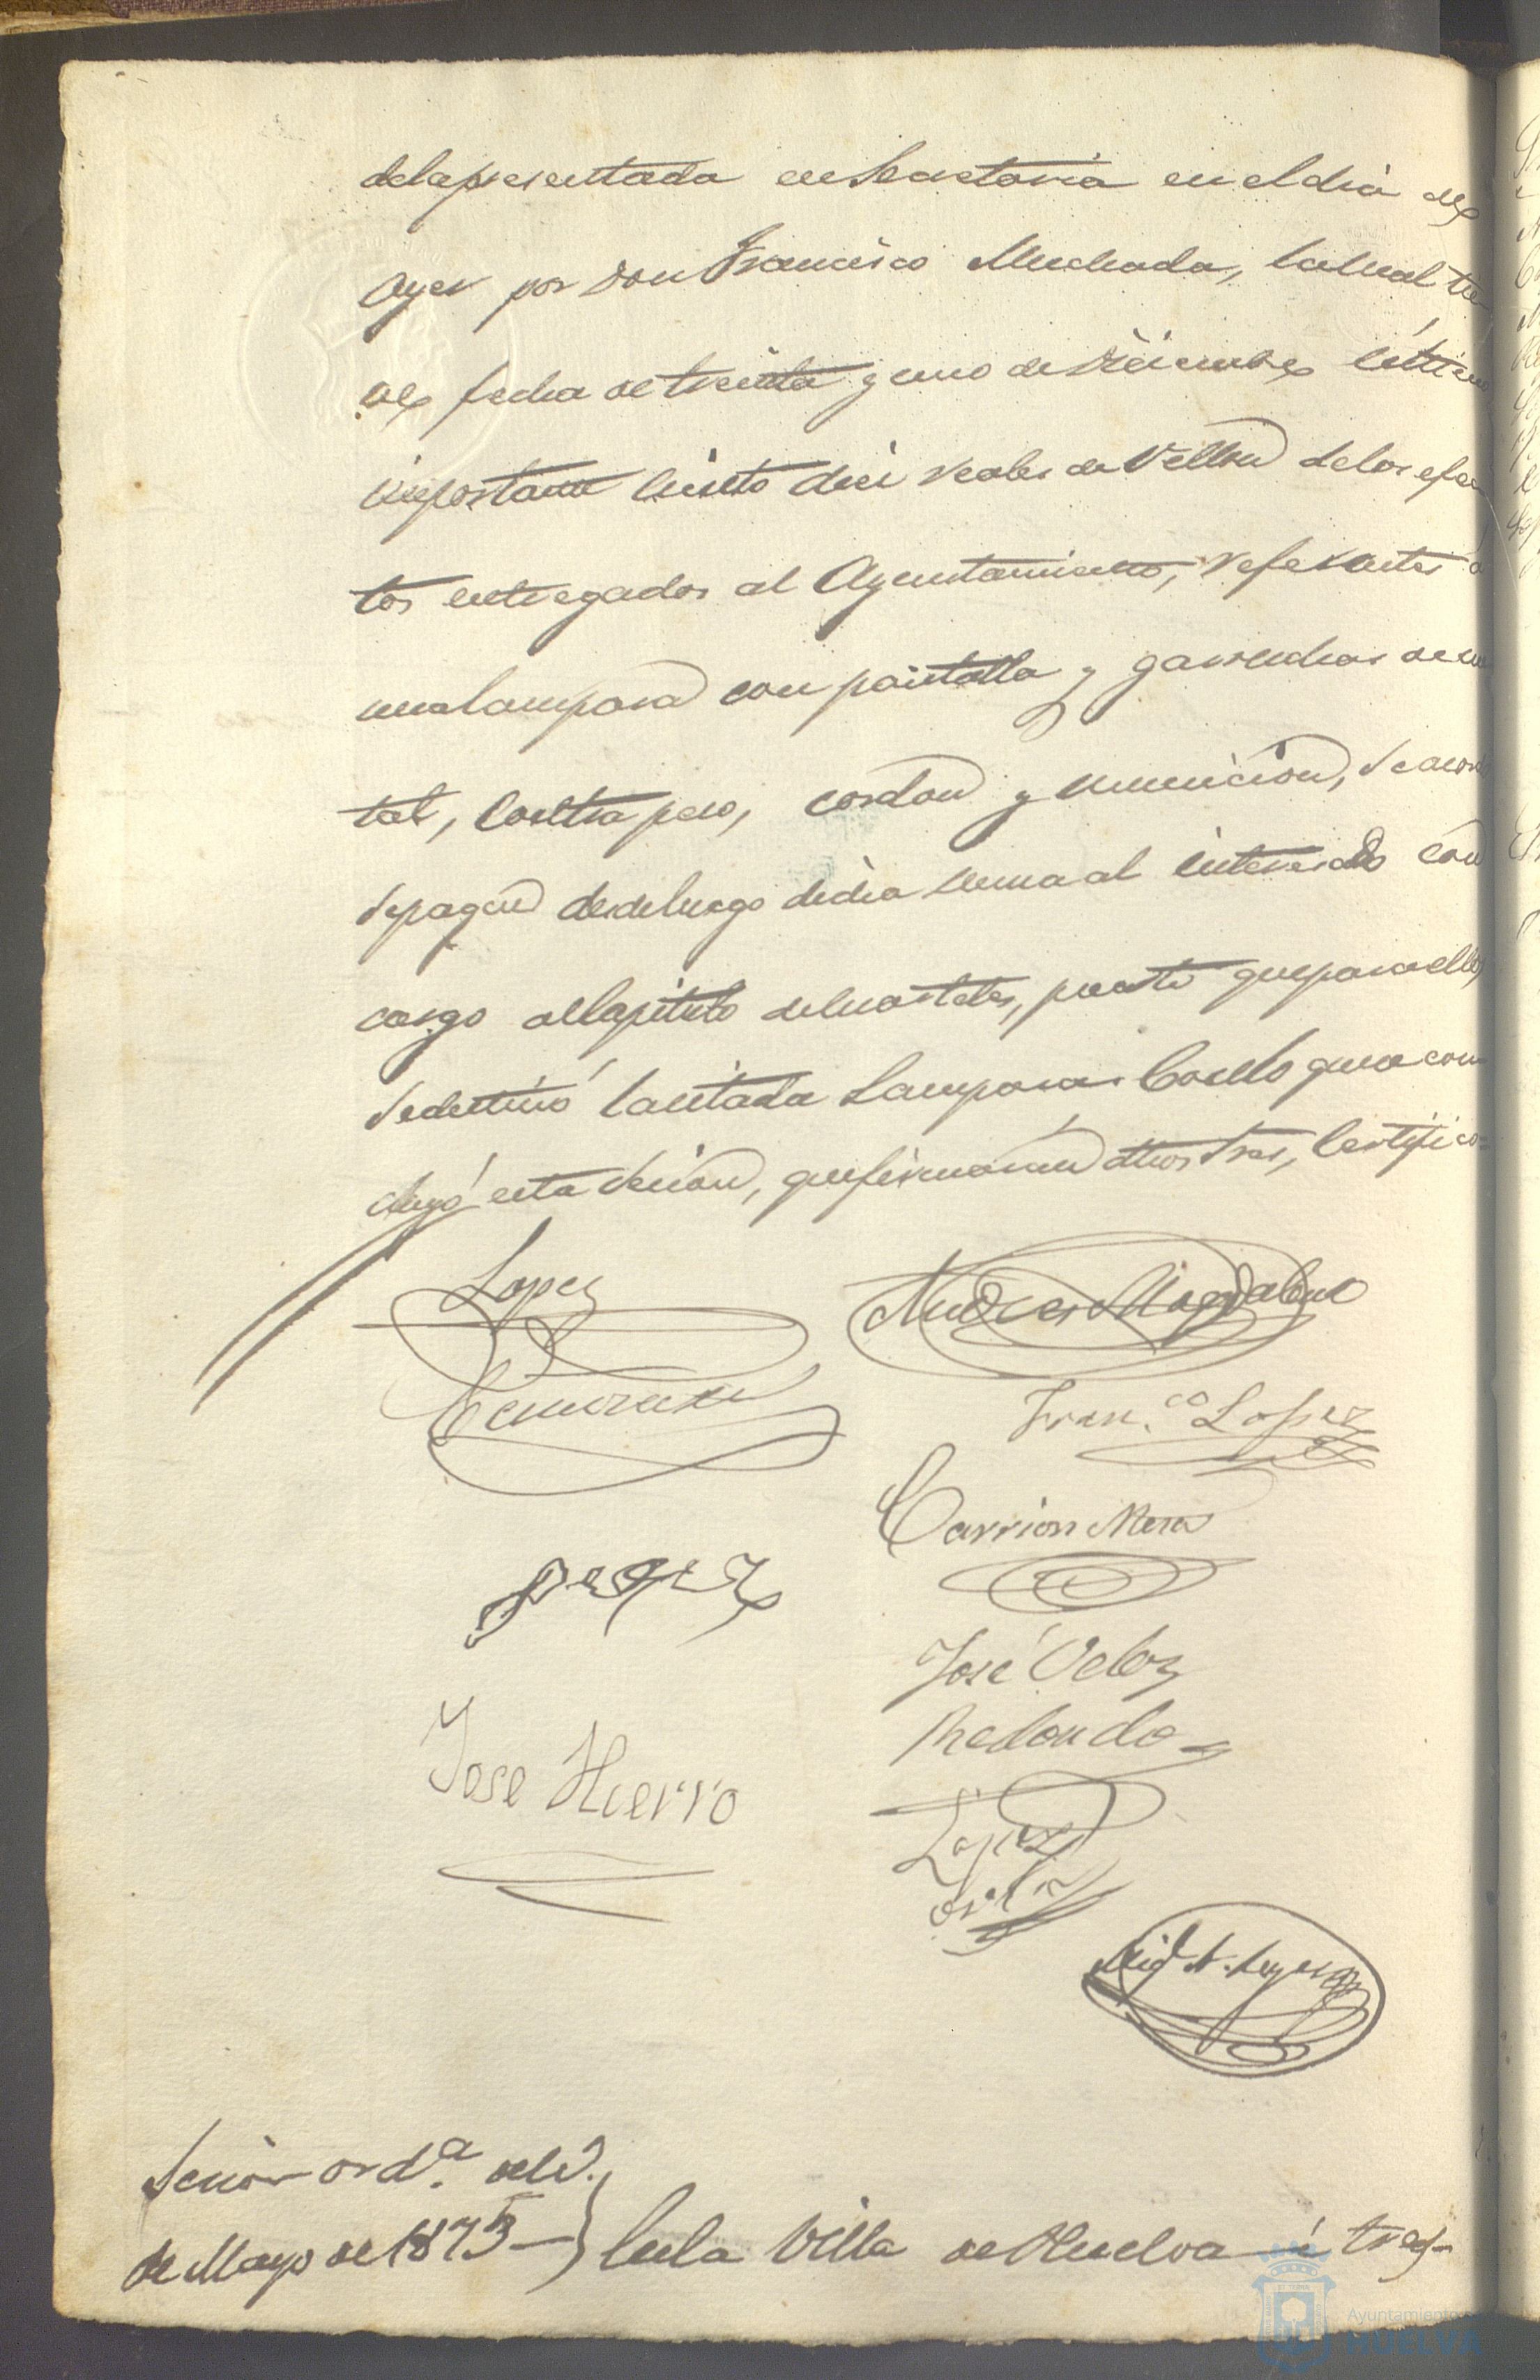 dela presentada en Secretaria en el dia de
Ayer por Don Francisco Muchada, la cual tie
ne fecha de treinta y uno de Diciembre último
importante ciento diez reales de Vellon de los efec
tos entregados al Ayuntamiento, referentes a
una lampara con pantalla y garruchas de me
tal, Contrapeso, cordon y municion, se acordó
se pague desde luego dicha suma al interesado con
cargo al Capitulo de
se destinó la citada Lampara. Con lo que se con
cluyó esta sesion, que firman otros Sres, Certifico=
Lopez
Andres Magdaleno
Fran.co Lopez
Carrion Mora
José Veloz
Redondo
Jose Hierro
Lopez
Sesion ord.a del
de Mayo de 1873 — } En la Villa de Huelva á tres
Ayuntamiento
HUELVA